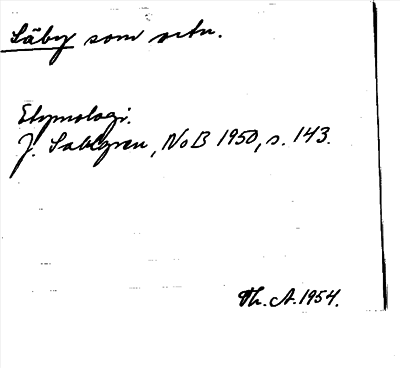 Säby som ortn.
Etymologi.
J. Sahlgren, NoB 1950, s. 143.
Th. A. 1954.